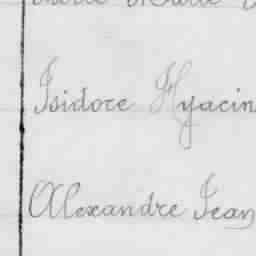 Isidore Hyacin
Alexandre Jean